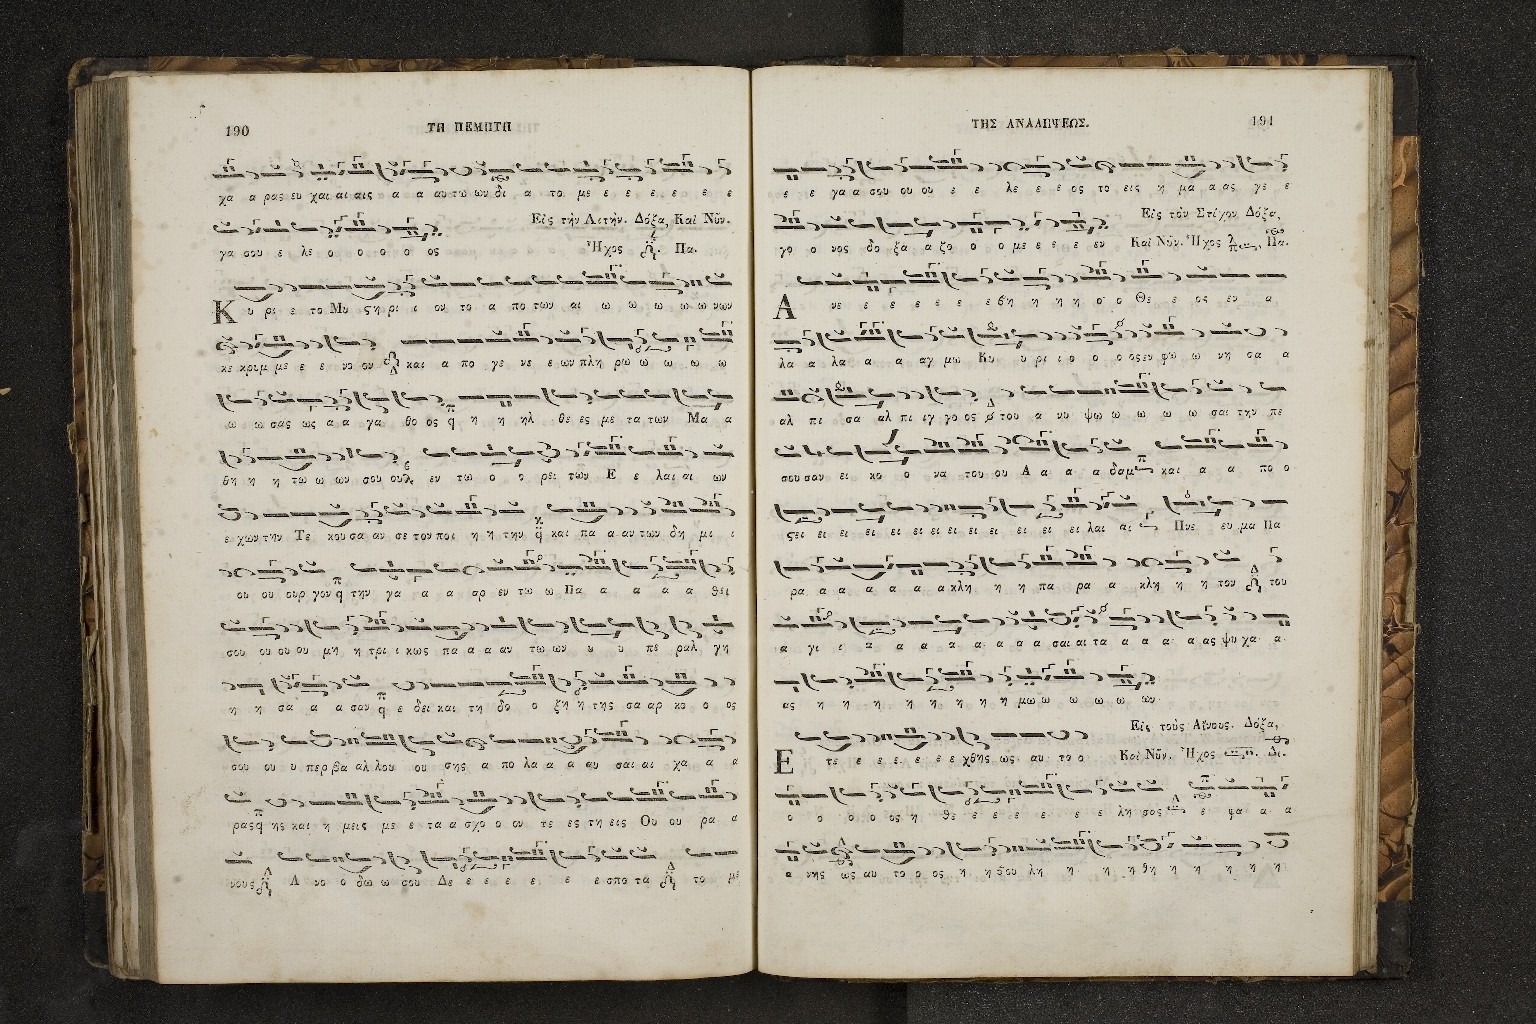 190
ΤΗ ΠΕΜΠΤΗ
χα α ρας ευ χαι αι αις α α αυ τω ων δι α το με ε ε ε ε ε ε
Εἰς τὴν Λιτήν. Δόξα, Καὶ Νῦν.
γα σου ε λε ο ο ο ο ος Ἦχος Πα.
Κ υ ρι ε το Μυ ςη ρι ι ον το α πο των αι ω ω ω ω ω νων
κε κρυμ με ε ε νο ον και α πο γε νε ε ων πλη ρω ω ω ω ω
ω ω σας ως α α γα θο ος η η ηλ θε ες με τα των Μα α
θη η η τω ω ων σου ου εν τω ο ο ρει των Ε ε λαι αι ων
ε χων την Τε κου σα αν σε τον ποι η η την και πα α αν των δη μι ι
ου ου ουρ γον την γα α α αρ εν τω ω Πα α α α α θει
σου ου ου ου μη η τρι ι κως πα α α αν τω ων υ υ πε ραλ γη
η η σα α α σαν ε δει και τη δο ο ξη η της σα αρ κο ο ος
σου ου υ περ βα αλ λου ου σης α πο λα α α αυ σαι αι χα α α
ρας ης και η μεις με ε τα α σχο ο ον τε ες τη εις Ου ου ρα α
νους Α νο ο δω ω σου Δε ε ε ε ε ε ε σπο τα το με
191
ΤΗΣ ΑΝΑΛΗΨΕΩΣ.
ε ε γα α σου ου ου ε ε λε ε ε ος το εις η μα α ας γε ε
Εἰς τὸν Στίχον Δόξα,
γο ο νος δο ξα α ζο ο ο με ε ε ε εν Καὶ Νῦν. Ἦχος Πα.
Α νε ε ε ε ε ε ε βη η η η ο ο Θε ε ος εν α
λα α λα α α αγ μω Κυ υ ρι ι ο ο ο ος εν φω ω νη σα α
αλ πι σα αλ πι ιγ γο ος του α νυ ψω ω ω ω ω σαι την πε
σου σαν ει κο ο να του ου Α α α α δαμ και α α πο ο
ςει ει ει ει ει ει ει ει ει ει ει ει λαι αι Πνε ευ μα Πα
ρα α α α α α α κλη η η πα ρα α κλη η η τον του
α γι ι α α α α α α α α σαι αι τα α α α α ας ψυ χα α
ας η η η η η η η η μω ω ω ω ω ων
Εἰς τοὺς Αἴνους. Δόξα,
Ε τε ε ε ε ε ε χθης ως αυ το ο Καὶ Νῦν. Ἦχος Δι.
ο ο ο ο ος η θε ε ε ε ε ε ε λη σος ε φα α α
α νης ως αυ το ο ος η η βου λη η η η θη η η η η η